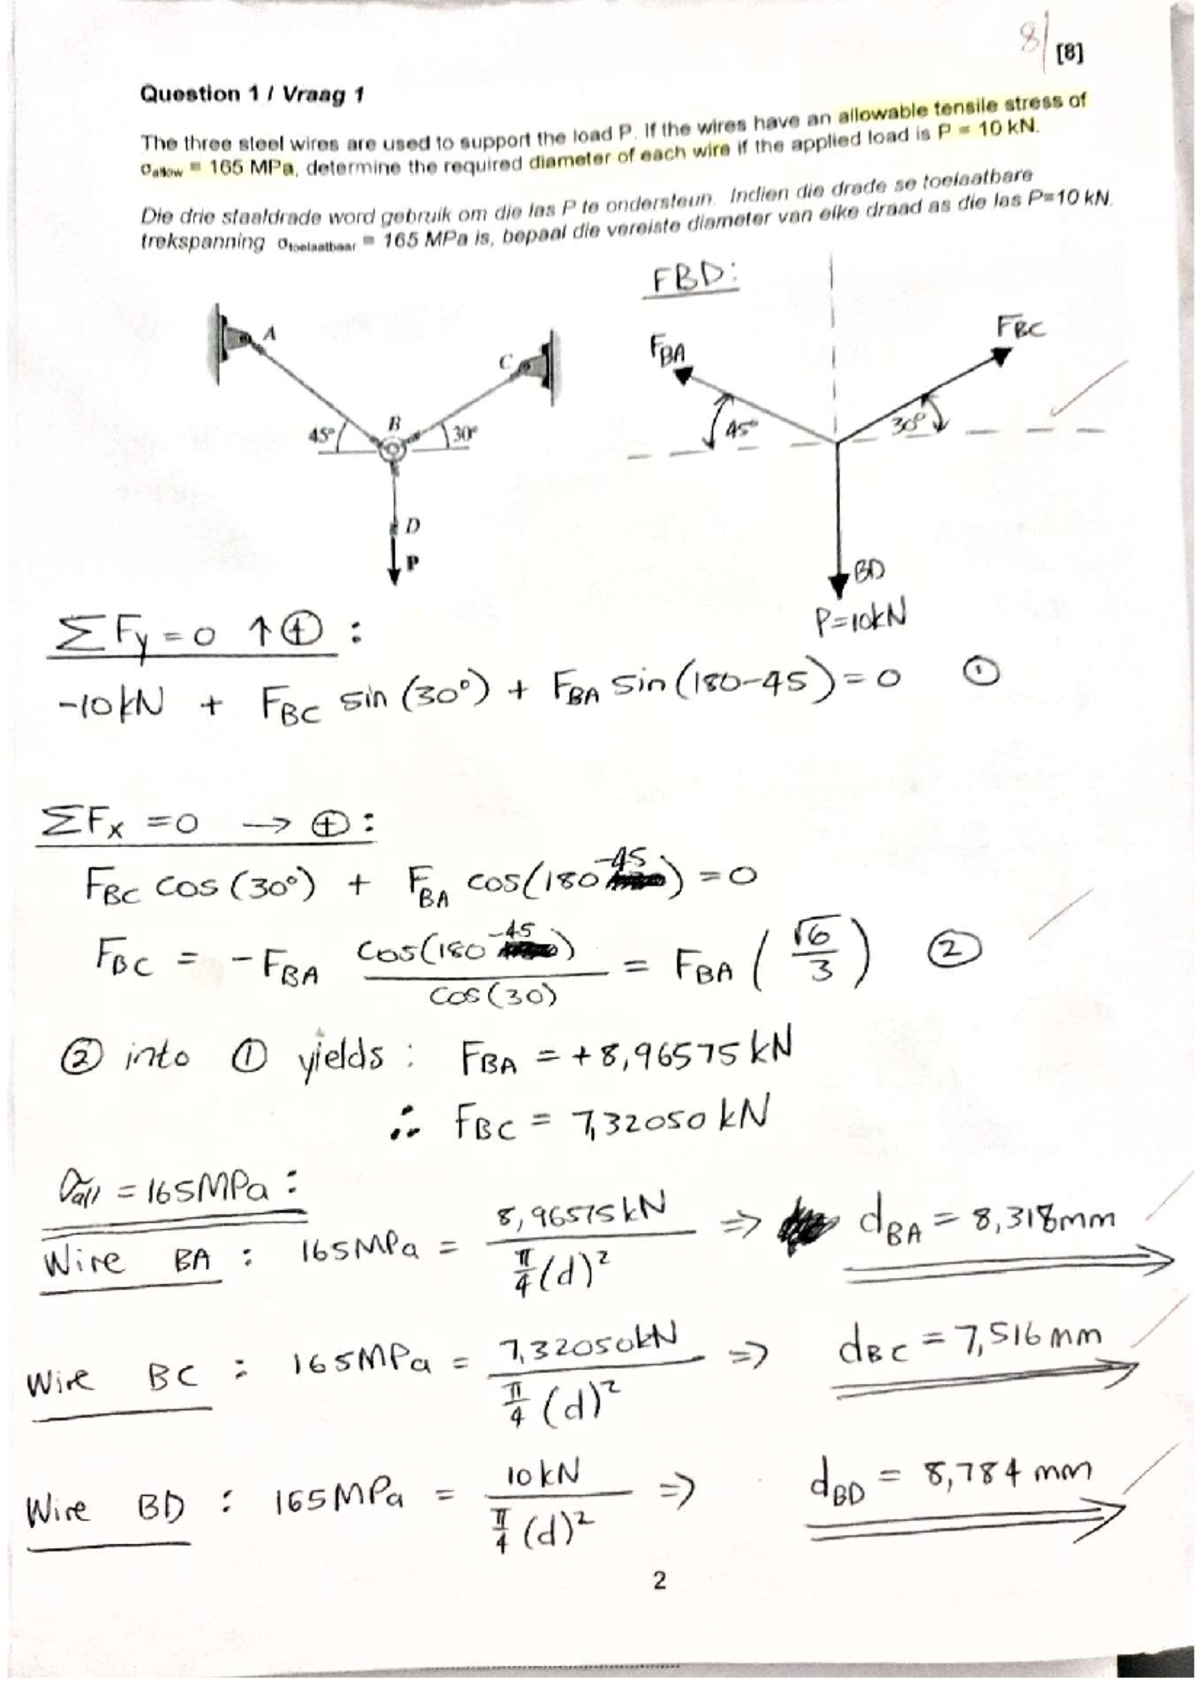 8/ [8]
Question 1 / Vraag 1
The three steel wires are used to support the load P. If the wires have an allowable tensile stress of
σallow = 165 MPa, determine the required diameter of each wire if the applied load is P = 10 kN.
Die drie staaldrade word gebruik om die las P te ondersteun. Indien die drade se toelaatbare
trekspanning σtoelaatbaar = 165 MPa is, bepaal die vereiste diameter van elke draad as die las P=10 kN.
FBD:
A
C
B
45°
30°
D
P
FBA
FBC
45°
30°
BD
P=10kN
ΣFy = 0 ↑⊕ :
-10kN + FBC sin (30°) + FBA sin (180-45) = 0 ①
ΣFx = 0 → ⊕ :
FBC cos (30°) + FBA cos(180-45) = 0
FBC = -FBA cos(180-45) / cos(30) = FBA (√6/3) ②
② into ① yields : FBA = +8,96575 kN
∴ FBC = 7,32050 kN
σall = 165MPa :
Wire BA : 165MPa = 8,96575kN / π/4 (d)² ⇒ dBA = 8,318mm
Wire BC : 165MPa = 7,32050kN / π/4 (d)² ⇒ dBC = 7,516mm
Wire BD : 165MPa = 10kN / π/4 (d)² ⇒ dBD = 8,784 mm
2